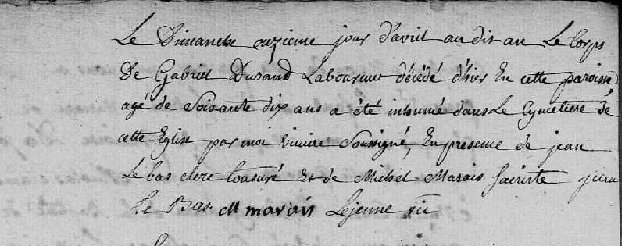 Le Dimanche onzieme jour d'avril au dit an Le Corps
De Gabriel Durand Laboureur décédé d'hier En cette paroisse
agé de Soixante dix ans a été inhumé dans Le Cymetiere de
cette Eglise par moi vicaire Soussigné, En presence de jean
Le bas clerc tonsuré et de Michel Marais Sacriste jean
Le Bas M marais Lejeune